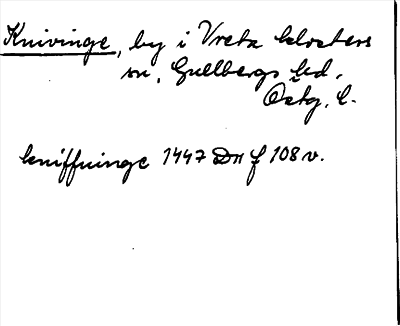 Knivinge, by i Vreta klosters
sn, Gullbergs hd,
Östg. l.
kniffuinge 1447 Dn f 108 v.